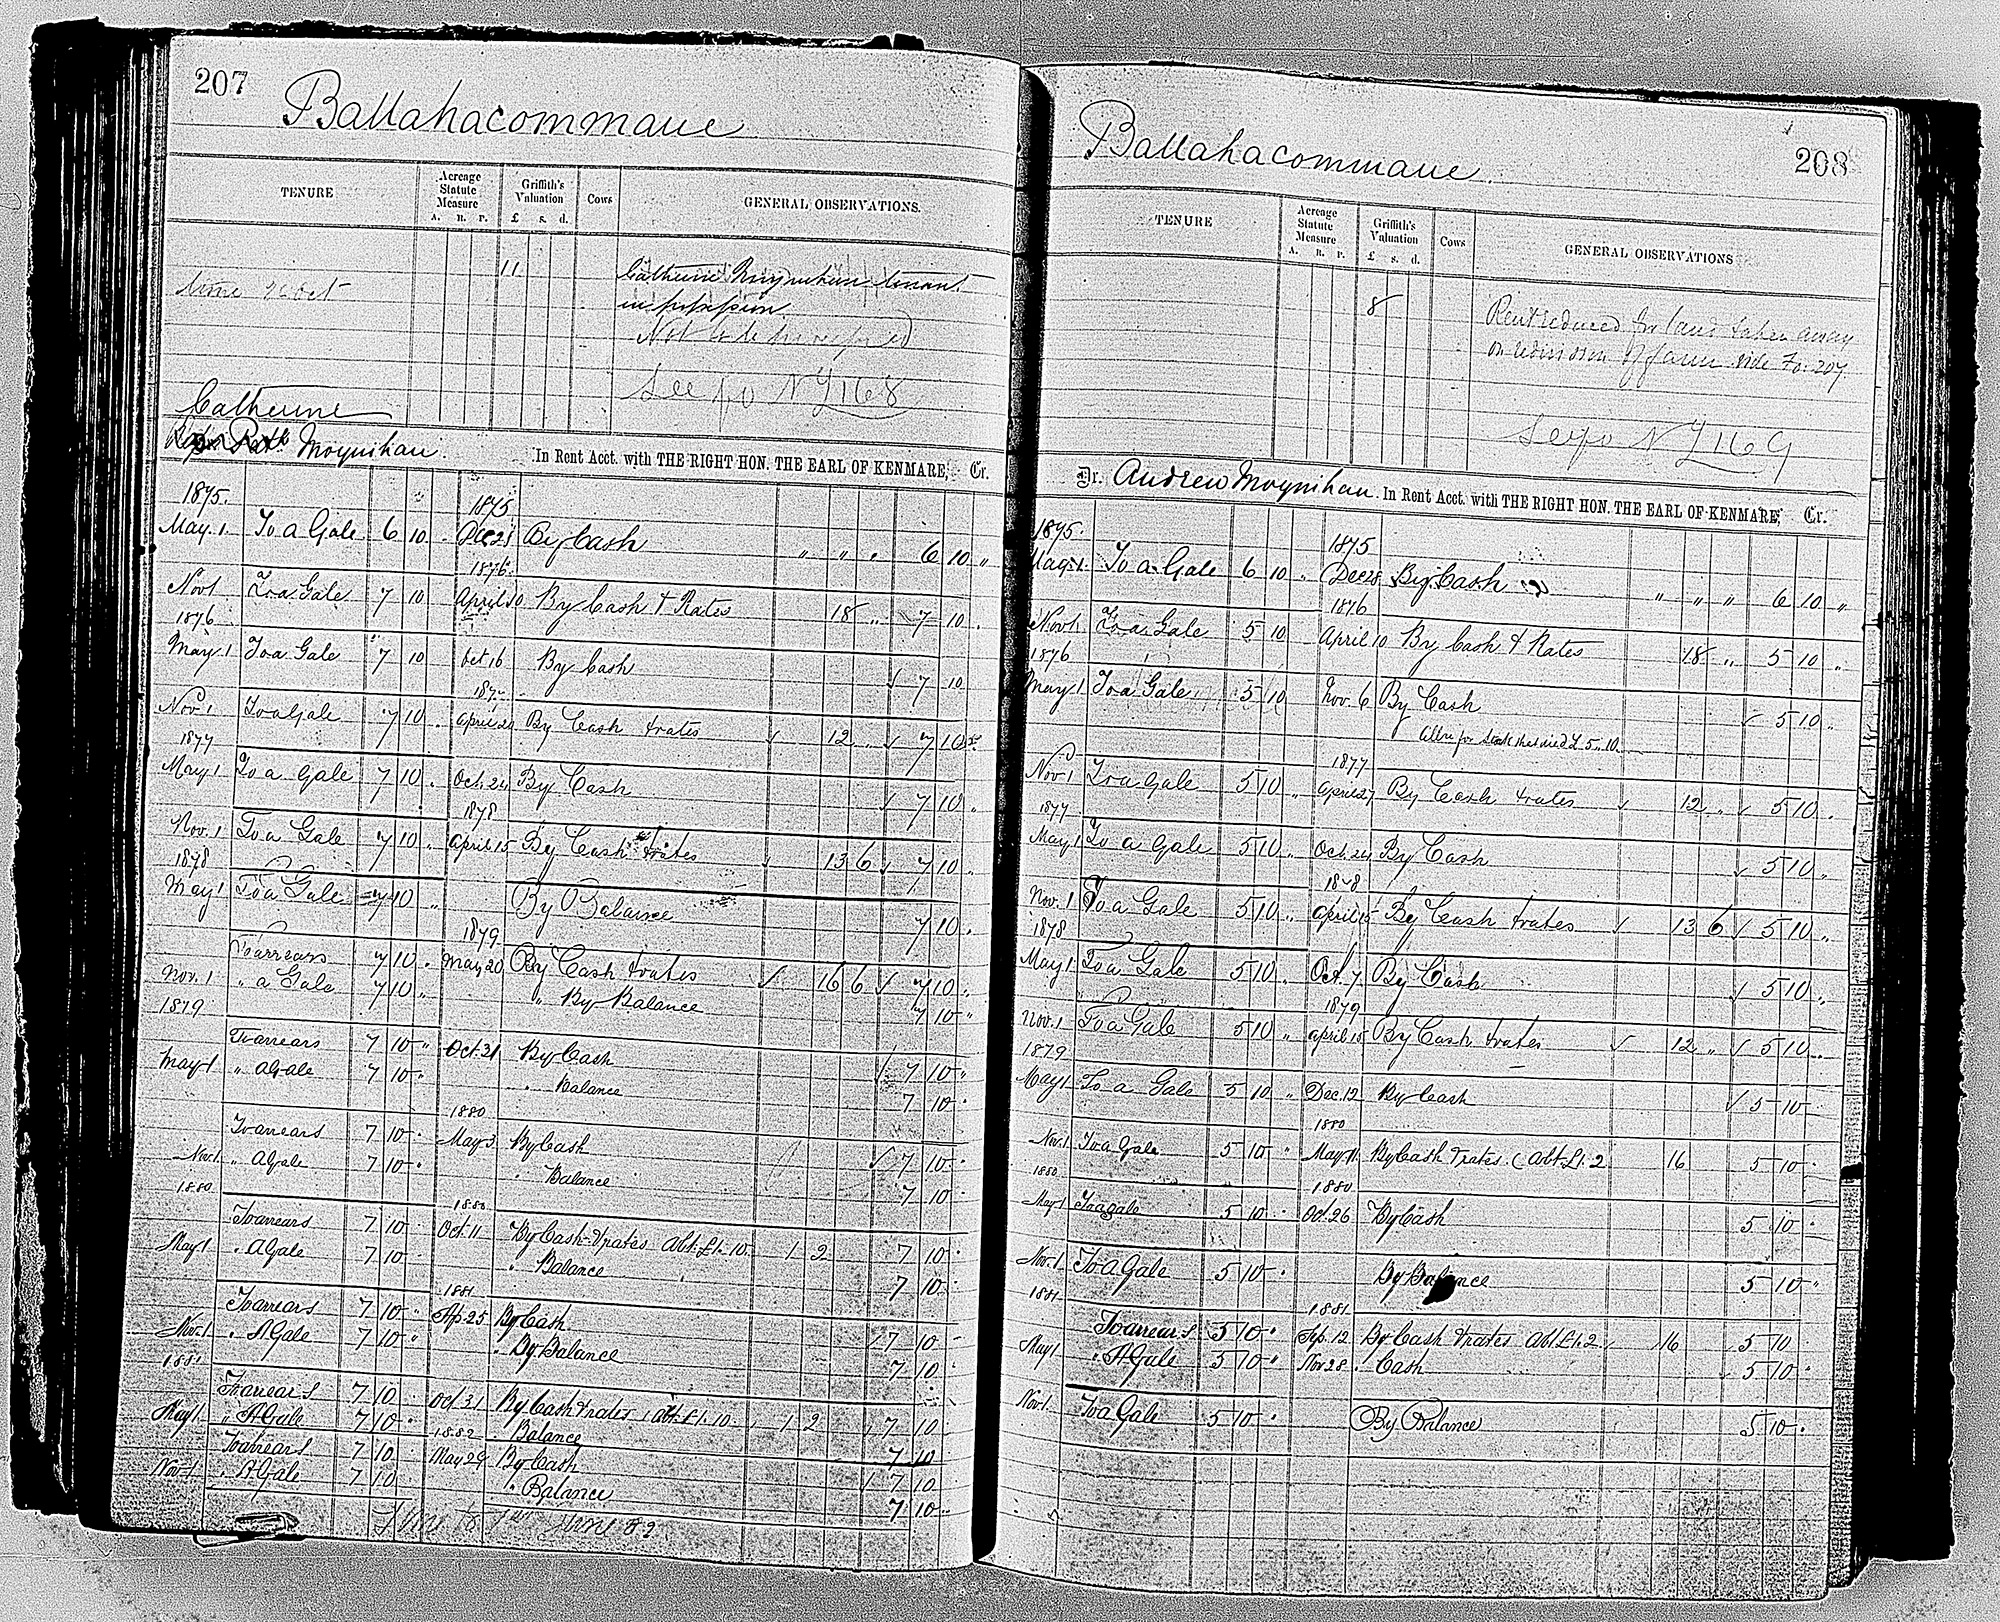 207
Ballahacommane
TENURE
Acreage Statute Measure
A. R. P.
Griffith's Valuation
£ s. d.
Cows
GENERAL OBSERVATIONS.
11
Catherine Moynihan tenant
in possession
Not to be
See fo N L 168
Catherine
Moynihan. In Rent Acct. with THE RIGHT HON. THE EARL OF KENMARE, Cr.
1875. 1875
May 1 To a Gale 6 10 Dec 28 By Cash " " " 6 10 "
1876
Nov 1 To a Gale 7 10 April 10 By Cash & Rates 18 " 7 10 "
1876
May 1 To a Gale 7 10 Oct 16 By Cash 7 10
1877
Nov. 1 To a Gale 7 10 April 20 By Cash & rates 12 " 7 10
1877
May 1 To a Gale 7 10 " Oct. 24 By Cash 7 10 "
1878
Nov. 1 To a Gale 7 10 " April 15 By Cash & rates 13 6 7 10 "
1878
May 1 To a Gale 7 10 " By Balance 7 10 "
1879
To arrears 7 10 " May 20 By Cash & rates 16 6 7 10 "
Nov. 1 " a Gale 7 10 " " By Balance 7 10 "
1879
To arrears 7 10 " Oct. 21 By Cash 7 10 "
May 1 " A Gale 7 10 " " Balance 7 10 "
1880
To arrears 7 10 " May 3 By Cash 7 10 "
Nov. 1 " A Gale 7 10 " " Balance 7 10 "
1880 1880
To arrears 7 10 Oct. 11 By Cash & rates Abt. £1. 10. 1 2 7 10 "
May 1 " A Gale 7 10 " Balance 7 10 "
1881
To arrears 7 10 " Ap. 25 By Cash 7 10 "
Nov. 1 " A Gale 7 10 " " By Balance 7 10 "
1881
To arrears 7 10 Oct 31 By Cash & rates Abt. £1. 10 1 2 7 10
May 1 " A Gale 7 10 " Balance 7 10
1882
To arrears 7 10 May 29 By Cash 7 10
Nov. 1 " A Gale 7 10 " Balance 7 10 "
208
Ballahacommane.
TENURE
Acreage Statute Measure
A. R. P.
Griffith's Valuation
£ s. d.
Cows
GENERAL OBSERVATIONS
8
Rent reduced for land taken away
on division of farm. vide Fo. 207
See fo N L 169
Dr. Andrew Moynihan. In Rent Acct. with THE RIGHT HON. THE EARL OF KENMARE, Cr.
1875. 1875
May 1 To a Gale 6 10 " Dec 28 By Cash " " " 6 10 "
1876
Nov 1 To a Gale 5 10 April 10 By Cash & Rates 18 " 5 10 "
1876
May 1 To a Gale 5 10 Nov. 6 By Cash 5 10 "
Allce for that died £5.10
1877
Nov 1 To a Gale 5 10 " April 27 By Cash & rates 12 " 5 10 "
1877
May 1 To a Gale 5 10 " Oct. 24 By Cash 5 10 "
1878
Nov. 1 To a Gale 5 10 " April 15 By Cash & rates 13 6 5 10 "
1878
May 1 To a Gale 5 10 " Oct. 7 By Cash 5 10 "
1879
Nov. 1 To a Gale 5 10 " April 15 By Cash & rates 12 " 5 10 "
1879
May 1 To a Gale 5 10 " Dec. 12 By Cash 5 10 "
1880
Nov. 1 To a Gale 5 10 " May 11 By Cash & rates. (Abt. £1. 2 16 5 10 "
1880 1880
May 1 To a gale 5 10 " Oct. 26 By Cash 5 10 "
Nov. 1 To a Gale 5 10 " By Balance 5 10 "
1881 1881
To arrears 5 10 " Sep. 12 By Cash & rates Abt. £1. 2 16 5 10
May 1 " A Gale 5 10 " Nov 28 " Cash 5 10 "
Nov. 1 To a Gale 5 10 " By Balance 5 10 "